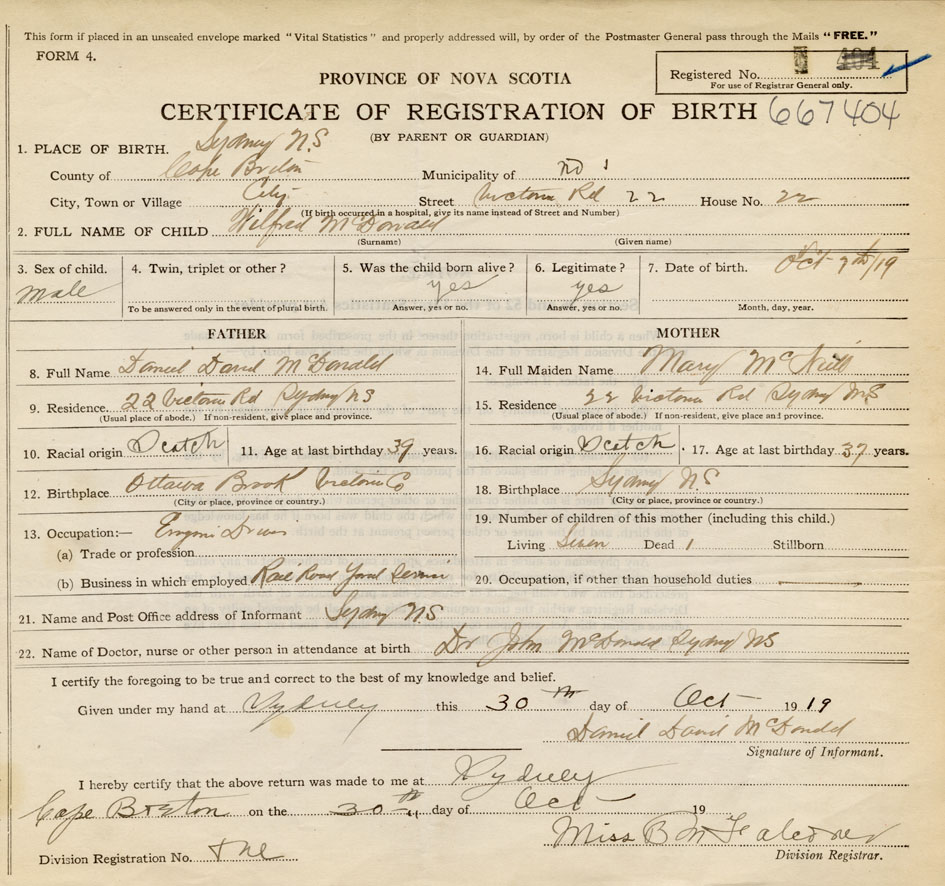 This form if placed in an unsealed envelope marked "Vital Statistics" and properly addressed will, by order of the Postmaster General pass through the Mails "FREE."
FORM 4.
Registered No. 404
For use of Registrar General only.
PROVINCE OF NOVA SCOTIA
CERTIFICATE OF REGISTRATION OF BIRTH 667404
(BY PARENT OR GUARDIAN)
1. PLACE OF BIRTH. Sydney N.S
County of Cape Breton Municipality of No 1
City, Town or Village City Street Victoria Rd 22 House No. 22
(If birth occurred in a hospital, give its name instead of Street and Number)
2. FULL NAME OF CHILD Wilfred McDonald
(Surname) (Given name)
3. Sex of child. 4. Twin, triplet or other? 5. Was the child born alive? 6. Legitimate? 7. Date of birth. Oct 7th/19
Male yes yes
To be answered only in the event of plural birth. Answer, yes or no. Answer, yes or no. Month, day, year.
FATHER
8. Full Name Daniel David McDonald
9. Residence. 22 Victoria Rd Sydney NS
(Usual place of abode.) If non-resident, give place and province.
10. Racial origin Scotch 11. Age at last birthday 39 years.
12. Birthplace Ottawa Brook Victoria Co
(City or place, province or country.)
13. Occupation:—
(a) Trade or profession
(b) Business in which employed Rail Road Yard
MOTHER
14. Full Maiden Name Mary
15. Residence 22 Victoria Rd Sydney NS
(Usual place of abode.) If non-resident, give place and province.
16. Racial origin Scotch 17. Age at last birthday 37 years.
18. Birthplace Sydney NS
(City or place, province or country.)
19. Number of children of this mother (including this child.)
Living Seven Dead 1 Stillborn
20. Occupation, if other than household duties
21. Name and Post Office address of Informant Sydney N.S
22. Name of Doctor, nurse or other person in attendance at birth Dr John McDonald Sydney NS
I certify the foregoing to be true and correct to the best of my knowledge and belief.
Given under my hand at Sydney this 30th day of Oct 1919
Daniel David McDonald
Signature of Informant.
I hereby certify that the above return was made to me at Sydney
Cape Breton on the 30th day of Oct 19
Miss B M Falconer
Division Registrar.
Division Registration No. One